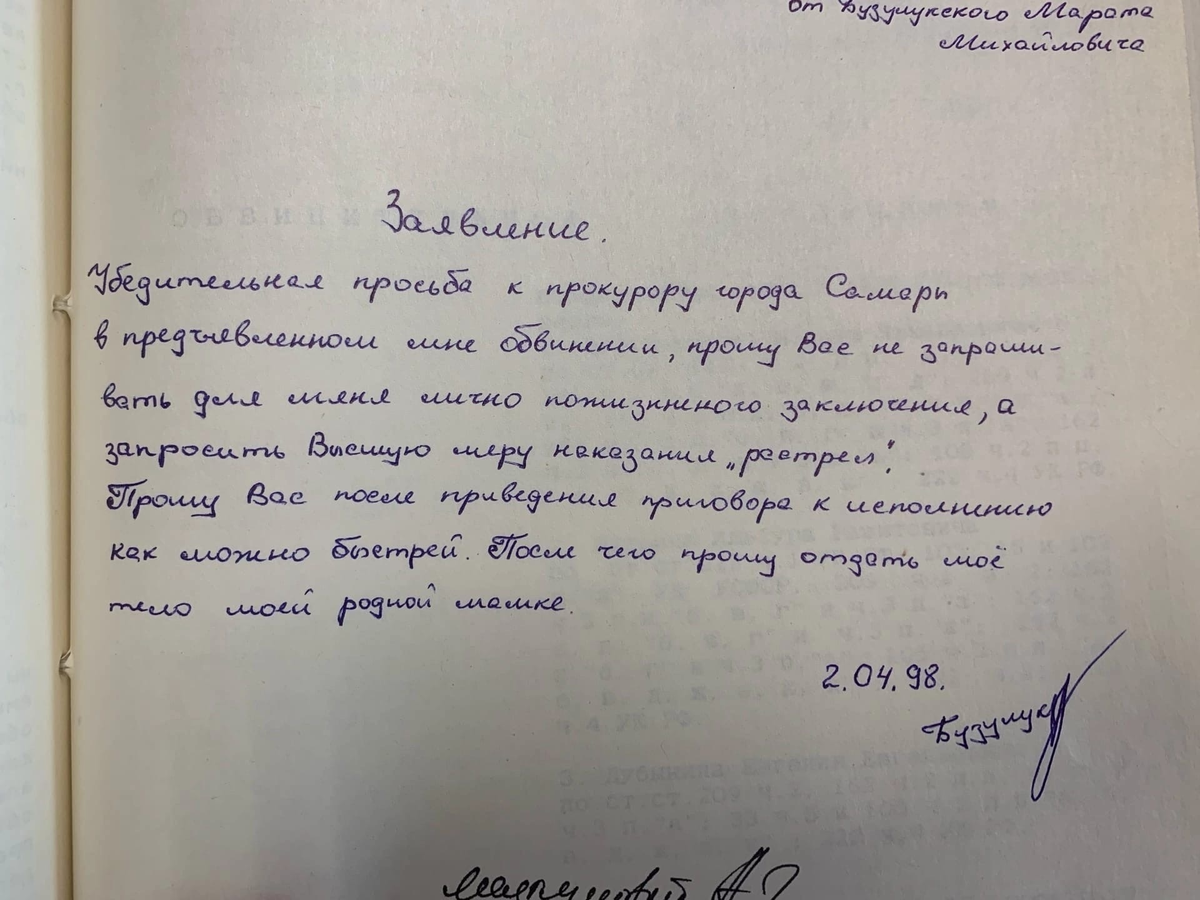 от Бузулукского Марата
Михайловича
Заявление.
Убедительная просьба к прокурору города Самары
в предъявленном мне обвинении, прошу Вас не запраши-
вать для меня лично пожизненного заключения, а
запросить Высшую меру наказания „растрел".
Прошу Вас после приведения приговора к исполнению
как можно быстрей. После чего прошу отдать моё
тело моей родной мамке.
2.04.98.
Бузулук